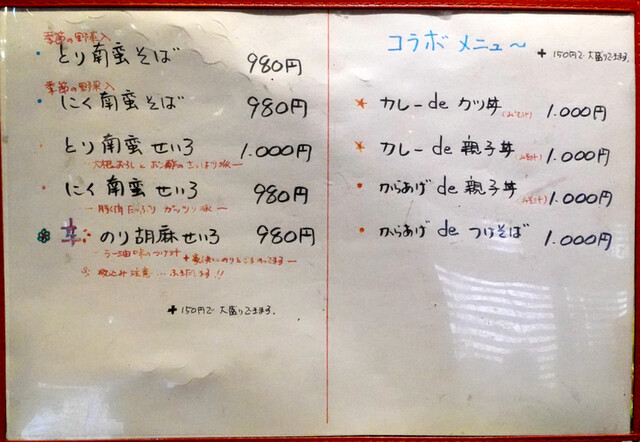 季節の野菜入
・とり南蛮そば 980円
季節の野菜入
・にく南蛮そば 980円
・とり南蛮せいろ 1.000円
ー大根おろしとポン酢のさっぱり味ー
・にく南蛮せいろ 980円
ー豚肉たっぷりガッツリ味ー
辛 のり胡麻せいろ 980円
ーラー油味のつけ汁
※ 吸込み注意…
+150円で大盛りできます。
コラボメニュ〜
+150円で大盛りできます。
★カレーdeカツ丼 1.000円
★カレーde親子丼 1.000円
・からあげde親子丼 1.000円
・からあげdeつけそば 1.000円